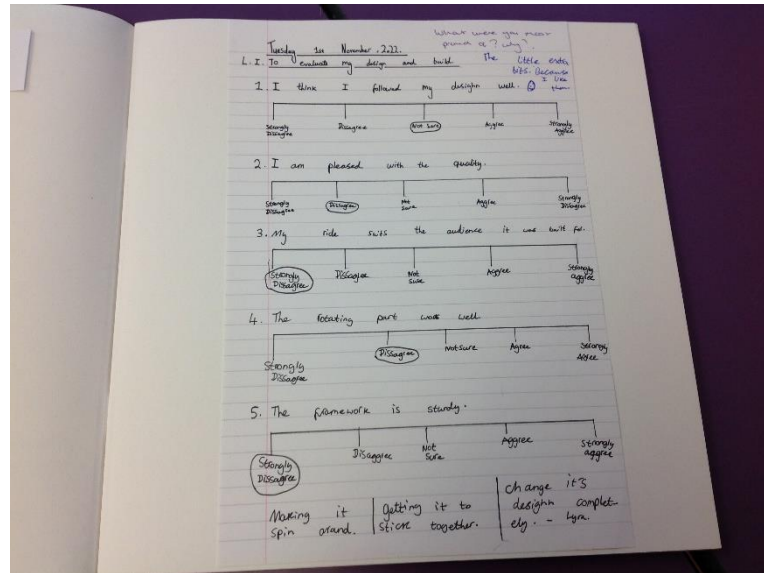 What were you most
proud of? why?
Tuesday 1st November .2.22.
L.I. To evaluate my design and build
The little extra
bits. Because
I like
them
1. I think I followed my desighn well.
Strongly Dissagree Disagree Not Sure Aggree Strongly Aggree
2. I am pleased with the quality.
Strongly Dissagree Dissagree Not Sure Aggree Strongly Dissagree
3. My ride suits the audience it was built for.
Strongly Dissagree Dissagree Not Sure Aggree Strongly aggree
4. The rotating part works well
Strongly Dissagree Dissagree Not sure Agree Strongly Agree
5. The framework is sturdy.
Strongly Dissagree Disaggree Not Sure Aggree Strongly aggree
Making it
spin arand.
getting it to
stick together.
change it's
desighn complet-
ely. -